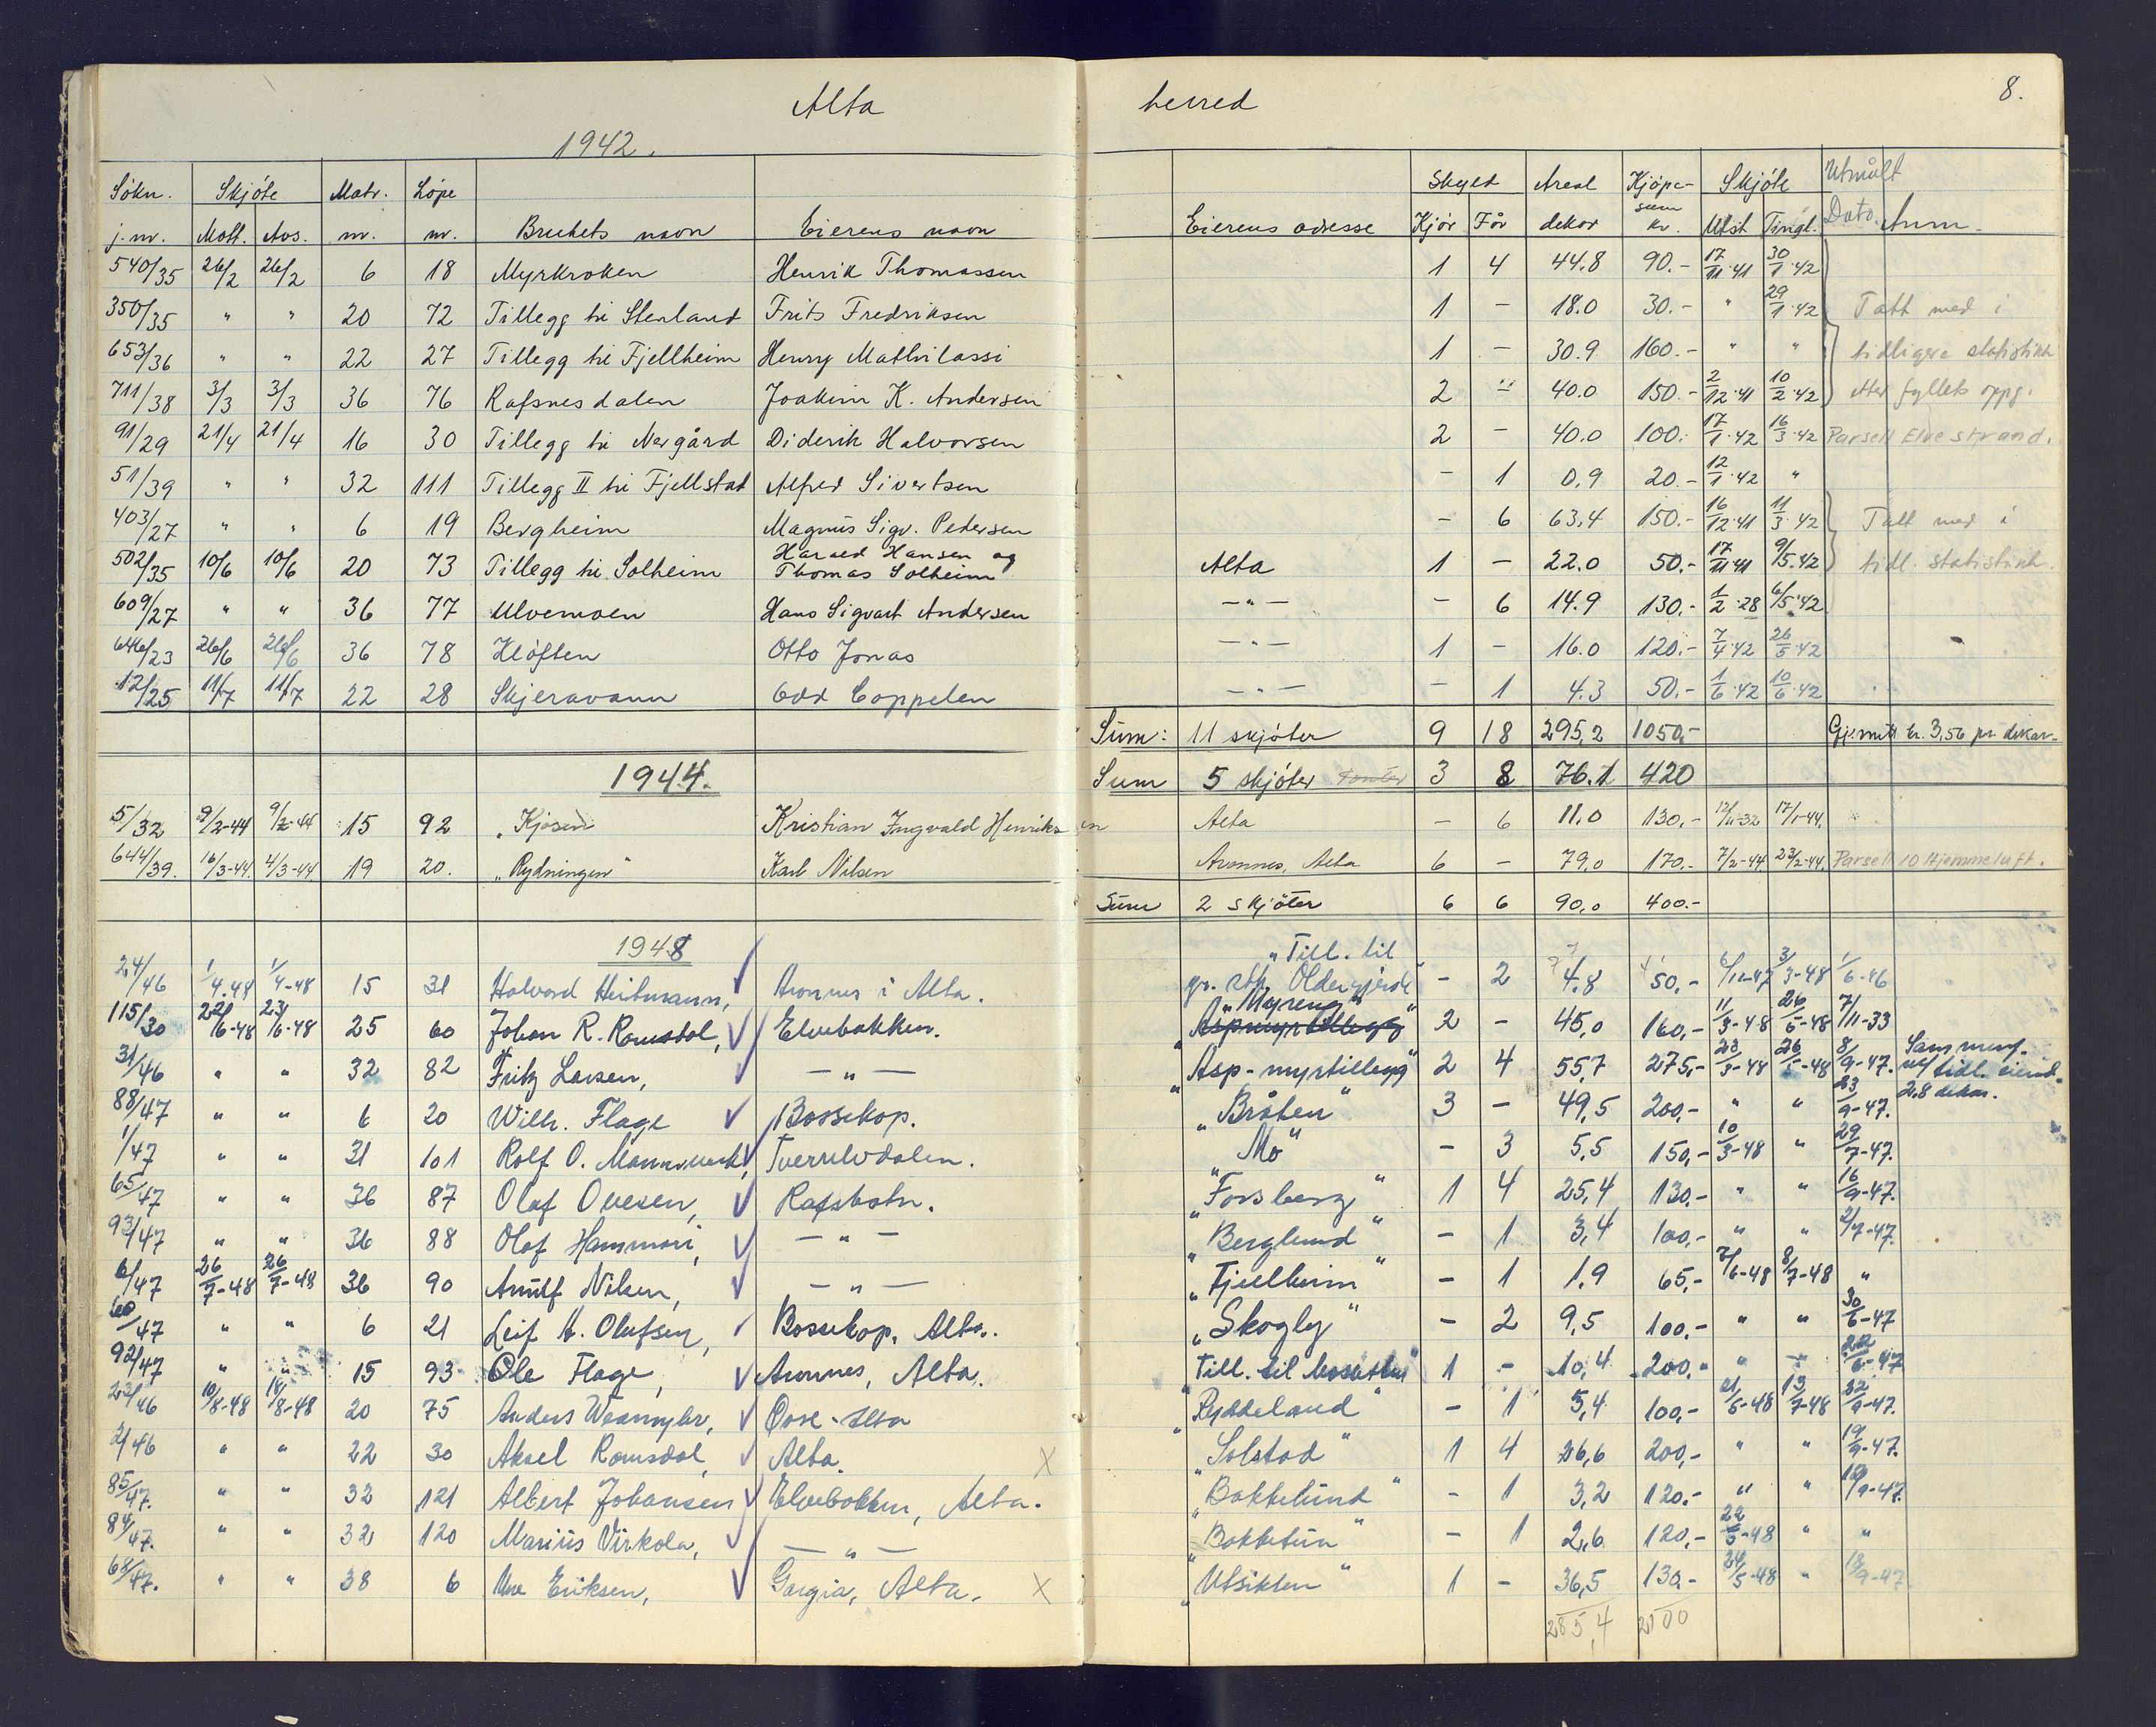 Alta herred 8.
1942.
Søkn. Skjøte Matr. Løpe Skyld Areal Kjøpe- Skjøte Utmålt
j.nr. Mott. Avs. nr. nr. Brukets navn Eierens navn Eierens adresse Kjör För dekar sum kr. Utst Tingl. Dato. Anm.
540/35 26/2 26/2 6 18 Myrkroken Henrik Thomassen 1 4 44.8 90.- 17/11·41 30/1·42
350/35 " " 20 72 Tillegg til Stenland Frits Fredriksen 1 - 18.0 30.- " 29/1·42 Tatt med i
653/36 " " 22 27 Tillegg til Fjellheim Henry Mathilassi 1 - 30.9 160.- " " tidligere statistikk
711/38 3/3 3/3 36 76 Rafsnesdalen Joakim K. Andersen 2 " 40.0 150.- 2/12·41 10/2·42 etter fylkets oppg.
91/29 21/4 21/4 16 30 Tillegg til Nergård Diderik Halvorsen 2 - 40.0 100.- 17/1·42 16/3·42 Parsell Elvestrand.
51/39 " " 32 111 Tillegg II til Fjellstad Alfred Sivertsen - 1 0.9 20.- 12/1·42 "
403/27 " " 6 19 Bergheim Magnus Sigv. Pedersen - 6 63,4 150.- 16/12·41 11/3·42 Tatt med i
502/35 10/6 10/6 20 73 Tillegg til Solheim Harald Hansen og Thomas Solheim Alta 1 - 22.0 50.- 17/11·41 9/5.42 tidl. statistikk.
609/27 " " 36 77 Ulvemoen Hans Sigvart Andersen -"- - 6 14.9 130.- 1/2·28 6/5·42
646/23 26/6 26/6 36 78 Kløften Otto Jonas -"- 1 - 16.0 120.- 7/4·42 26/5·42
12/25 11/7 11/7 22 28 Skjeravann Odd Coppelen -"- - 1 4.3 50.- 1/6·42 10/6·42
Sum: 11 skjøter 9 18 295,2 1050.- Gj.snitt kr. 3,56 pr. dekar.
1944.
Sum 5 skjøter 3 8 76.1 420
5/32 9/2-44 9/2-44 15 92 "Kjosen" Kristian Ingvald Henriksen Alta - 6 11.0 130.- 12/11-32 17/1-44.
644/39. 16/3-44. 4/3-44 19 20. "Rydningen" Karl Nilsen Aronnes, Alta 6 - 79,0 170.- 7/2-44 23/2-44. Parsell 10 Hjemmeluft.
Sum 2 skjöter 6 6 90,0 400.-
1948
24/46 1/4.48 1/4-48 15 31 Halvard Heitmann, Aronnes i Alta. "Till. til gr. stk. Oldergjerde" - 2 74.8 50.- 6/11-47 3/3-48 1/6-46
115/30 22/6-48 23/6-48 25 60 Johan R. Romsdal, Elvebakken. "Myreng" Aspmyrtillegg 2 - 45,0 160,- 11/3-48 26/5-48 7/11-33
31/46 " " 32 82 Fritz Larsen, -"- "Asp-myrtillegg" 2 4 55,7 275,- 23/3-48 26/5-48 8/9-47. Sammenf. m/ tidl. eiend. 2,8 dekar.
88/47 " " 6 20 Wilh. Flage Bossekop. "Bråten" 3 - 49,5 200,- " " 23/9-47.
1/47 " " 31 101 Rolf O. Mannsverk, Tverrelvdalen. "Mo" - 3 5,5 150,- 10/3-48 " 29/7-47.
65/47 " " 36 87 Olaf Ovesen, Rafsbotn. "Forsberg" 1 4 25,4 130.- " " 16/9-47.
93/47 " " 36 88 Olaf Hammari, -"- "Berglund" - 1 3,4 100,- " " 2/7-47.
6/47 26/7-48 26/7-48 36 90 Arnulf Nilsen, -"- "Fjellheim" - 1 1.9 65,- 7/6-48 8/7-48 "
60/47 " " 6 21 Leif A. Olufsen, Bossekop, Alta. "Skogly" - 2 9,5 100,- " " 30/6-47
92/47 " " 15 93 Ole Flage, Aronnes, Alta. 1 - 10,4 200,- " - 22/6-47
22/46 10/8-48 14/8-48 20 75 Anders Wesmyhr, Övre-Alta "Ryddeland" - 1 5,4 100,- 21/5-48 13/7-48 22/9-47.
2/46 " " 22 30 Aksel Romsdal, Alta. X "Solstad" 1 4 26,6 200,- " " 19/9-47.
85/47. " " 32 121 Albert Johansen Elvebakken, Alta. "Bakkelund" - 1 3,2 120.- " " 12/9-47.
84/47. " " 32 120 Marius Virkola, -"- "Bakketun" - 1 2,6 120,- 22/5-48 " "
68/47. " " 38 6 Une Eriksen, Gargia, Alta. X "Utsikten" 1 - 36,5 130.- 24/5-48 " 18/9-47.
285,4 2100